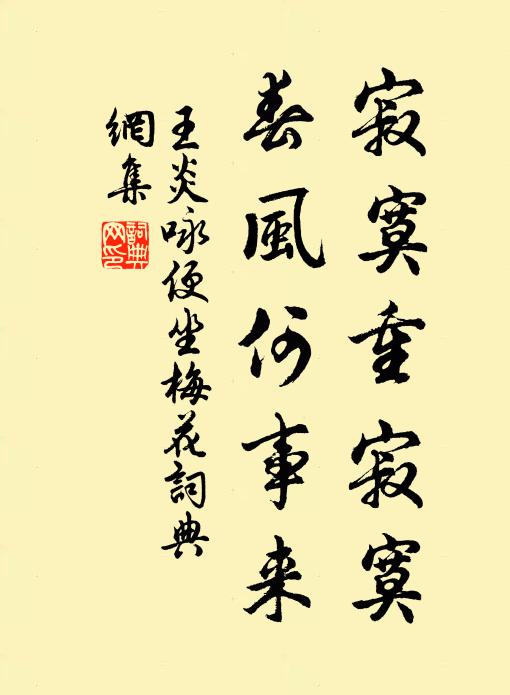 寂寞重寂寞
春風何事来
王炎咏便坐梅花詞典
網集
詞典
网印